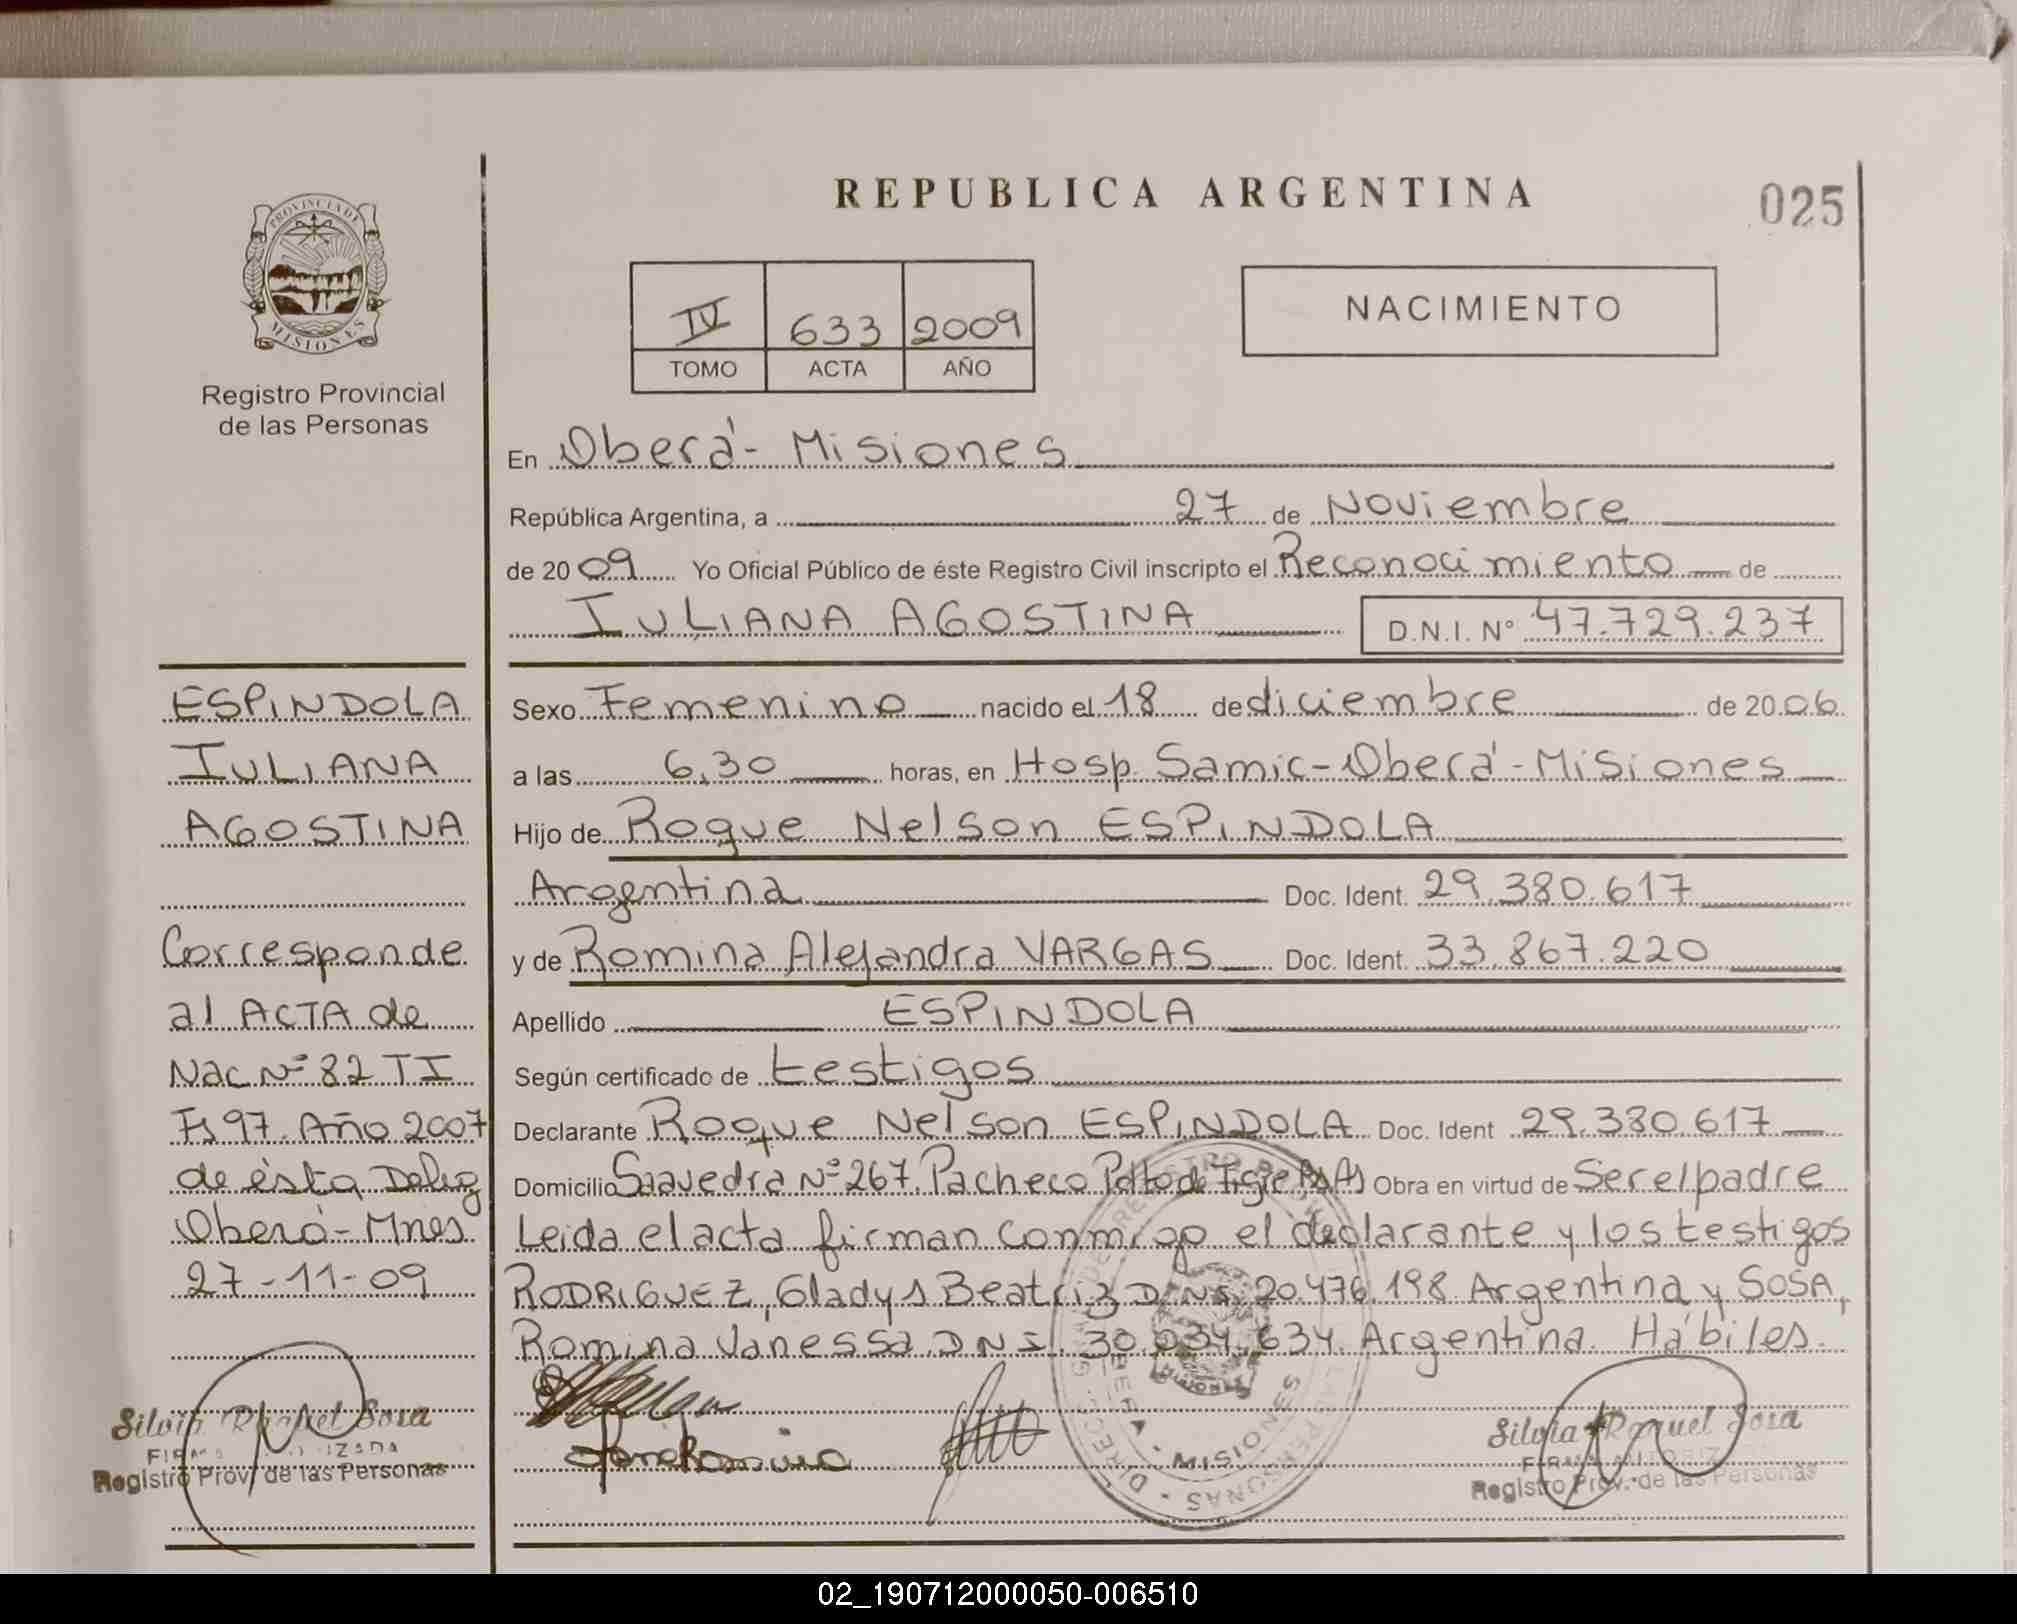 REPUBLICA ARGENTINA
025
PROVINCIA DE
MISIONES
Registro Provincial
de las Personas
IV 633 2009
TOMO ACTA AÑO
NACIMIENTO
En Oberá - Misiones
República Argentina, a 27 de Noviembre
de 2009 Yo Oficial Público de éste Registro Civil inscripto el Reconocimiento de
IULIANA AGOSTINA D.N.I. Nº 47.729.237
Sexo Femenino nacido el 18 de diciembre de 2006
a las 6,30 horas, en Hosp. Samic - Oberá - Misiones
Hijo de Roque Nelson ESPINDOLA
Argentina Doc. Ident. 29.380.617
y de Romina Alejandra VARGAS Doc. Ident. 33.867.220
Apellido ESPINDOLA
Según certificado de testigos
Declarante Roque Nelson ESPINDOLA Doc. Ident 29.380.617
Domicilio Saavedra Nº 267. Pacheco de Tigre Obra en virtud de Ser el padre
Leida el acta firman conmigo el declarante y los testigos
RODRIGUEZ, Gladys Beatriz D.N.I. 20.476.198 Argentina y SOSA,
Romina Vanessa D N I. 30.034.634. Argentina. Hábiles.
ESPINDOLA
IULIANA
AGOSTINA
Corresponde
al ACTA de
Nac Nº 82 TI
Fs 97. Año 2007
de ésta Deleg
Oberá - Mnes
27-11-09
Silvia Raquel Sosa
FIRMA AUTORIZADA
Registro Prov. de las Personas
Silvia Raquel Sosa
FIRMA AUTORIZADA
Registro Prov. de las Personas
MISIONES
02_190712000050-006510